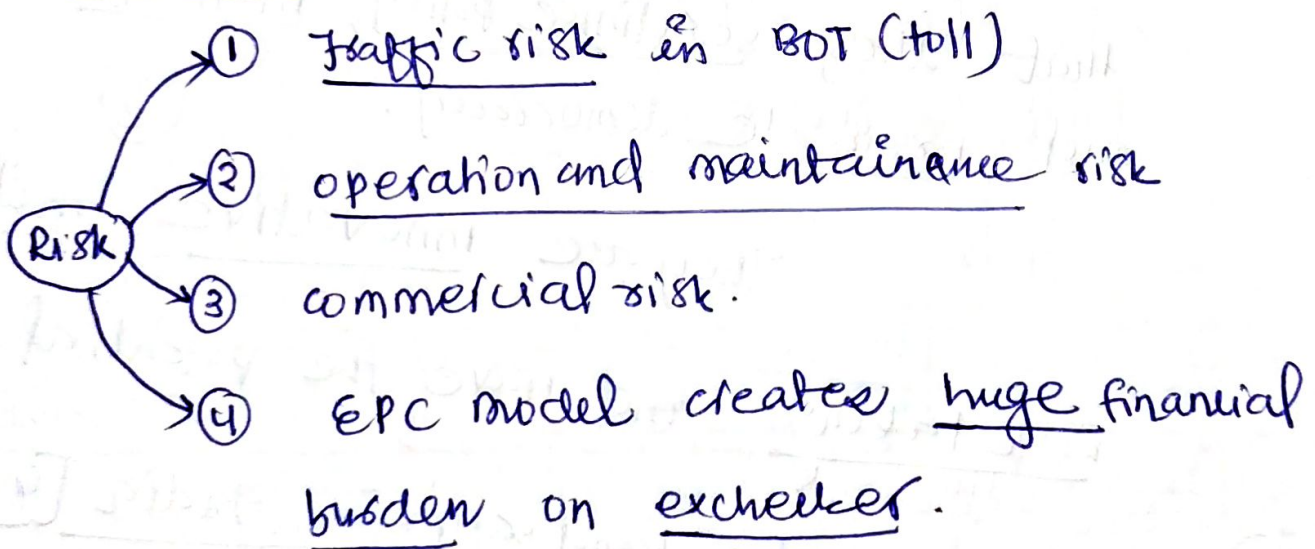 ① Traffic risk in BOT (toll)
② operation and maintainance risk
Risk
③ commercial risk.
④ EPC model creates huge financial
burden on exchecker.